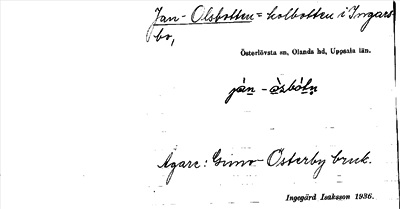 Jan-Olsbotten = kolbotten i Ingars-
bo,
Österlövsta sn, Olands hd, Uppsala län.
Ägare: Gimo-Österby bruk.
Ingegärd Isaksson 1936.